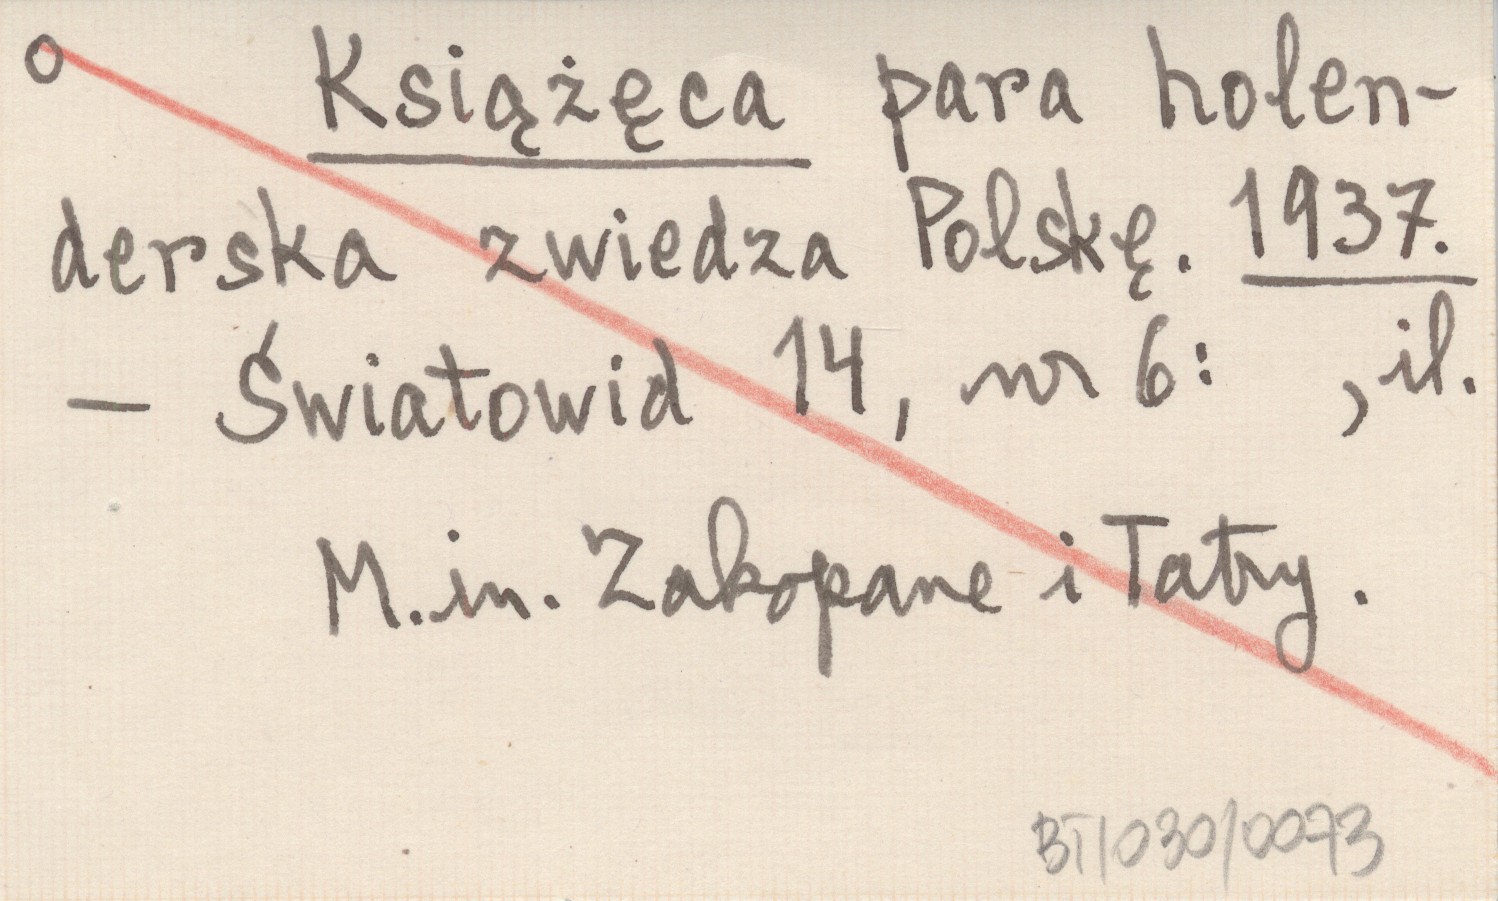 o Książęca para holen-
derska zwiedza Polskę. 1937.
— Światowid 14, nr 6: , il.
M.in. Zakopane i Tatry.
BT/030/0073